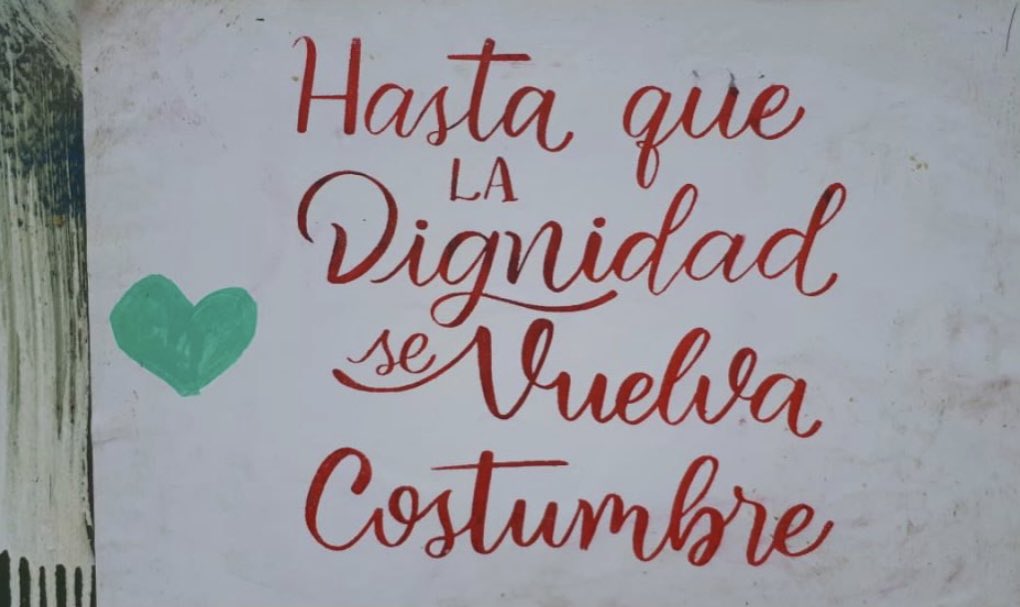 Hasta que
LA
Dignidad
se Vuelva
Costumbre